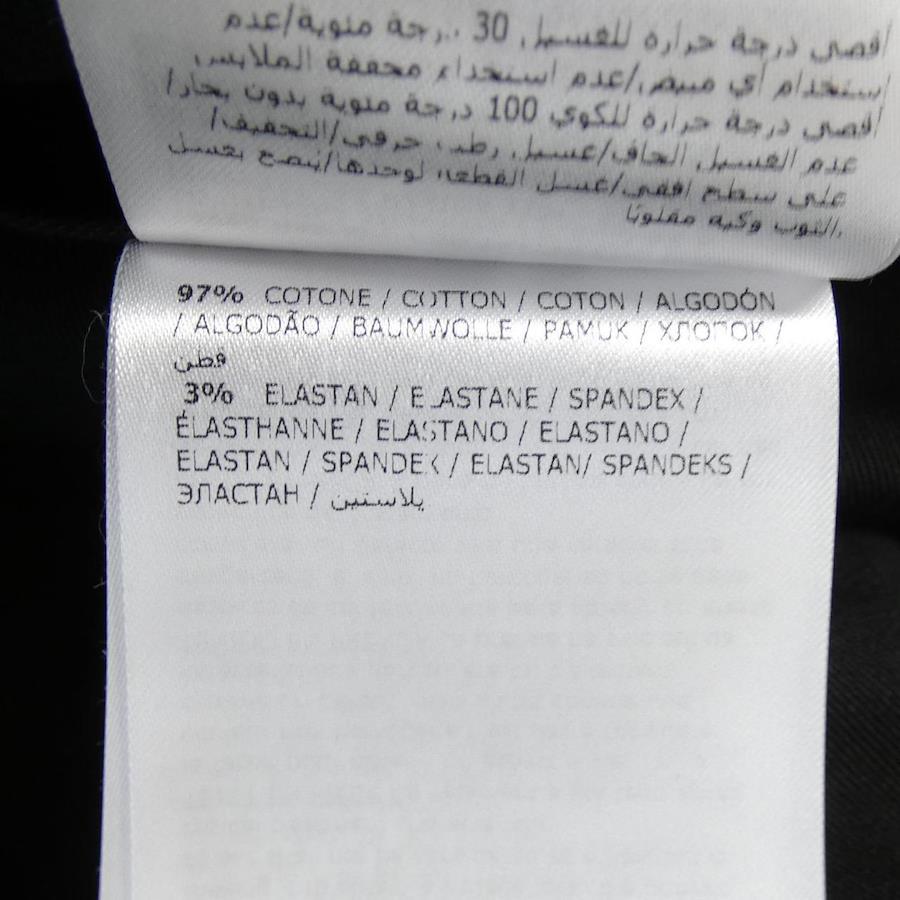 أقصى درجة حرارة للغسيل 30 درجة مئوية/عدم
إستخدام أي مبيض/عدم استخدام مجففة الملابس
أقصى درجة حرارة للكوي 100 درجة مئوية بدون بخار/
عدم الغسيل الجاف/غسيل رطب حرفي/التجفيف/
على سطح افقي/غسل القطعة لوحدها/ينصح بغسل
الثوب وكيه مقلوبًا.
97% COTONE / COTTON / COTON / ALGODÓN
/ ALGODÃO / BAUMWOLLE / PAMUK / ХЛОПОК /
قطن
3% ELASTAN / ELASTANE / SPANDEX /
ÉLASTHANNE / ELASTANO / ELASTANO /
ELASTAN / SPANDEX / ELASTAN/ SPANDEKS /
ЭЛАСТАН / يلاستين